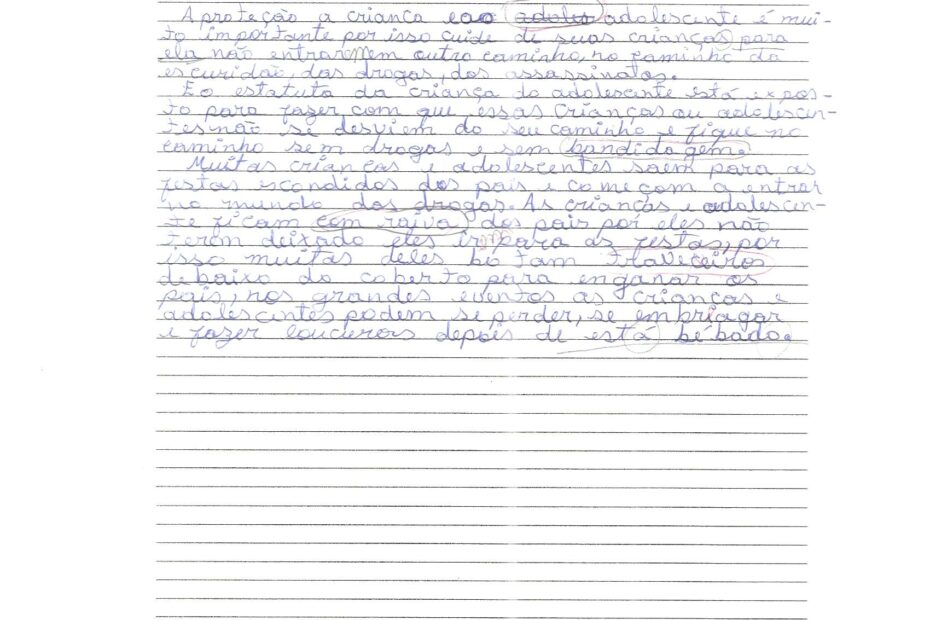 A proteção a criança e ao adoles adolescente é mui-
to importante por isso cuide de suas crianças para
ela não entrarem em outro caminho, no caminho da
escuridão, das drogas, dos assassinatos.
E o estatuto da criança do adolescente está expos-
to para fazer com que essas crianças ou adolescen-
tes não se desviem do seu caminho e fique no
caminho sem drogas e sem bandidagem.
Muitas crianças e adolescentes saem para as
festas escondidos dos pais e começam a entrar
no mundo das drogas. As crianças e adolescen-
te ficam com raiva dos pais por eles não
terem deixado eles ir para as festas, por
isso muitas deles botam traveceiros
debaixo do coberto para enganar os
pais, nos grandes eventos as crianças e
adolescentes podem se perder, se embriagar
e fazer loucuras depois de está bêbado.